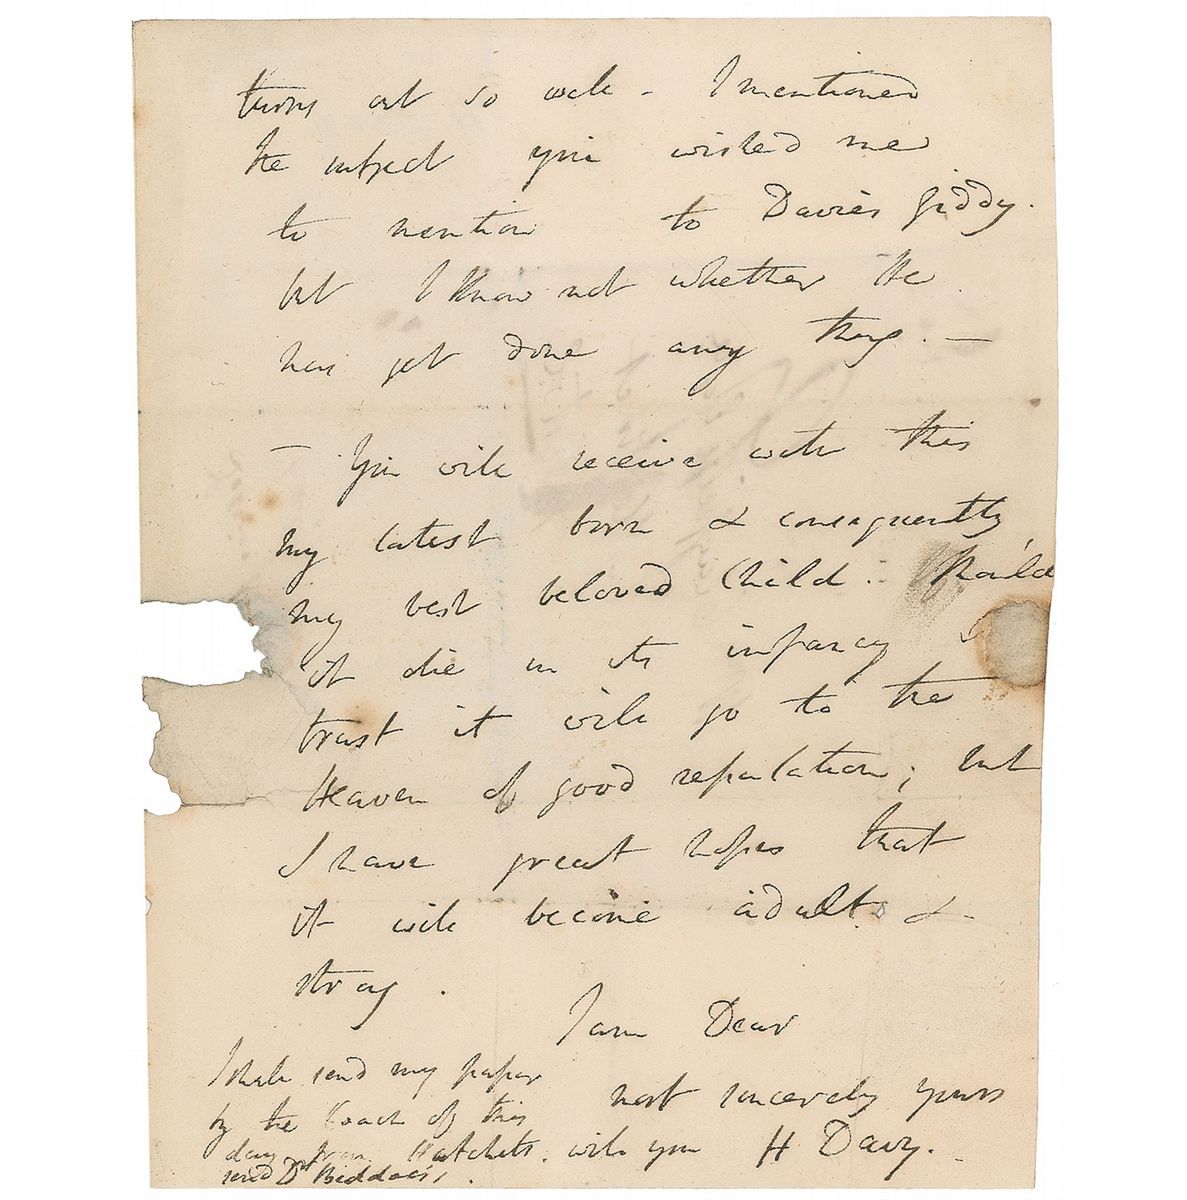 turns out so well - I mentioned
the subject you wished me
to mention to Davies Giddy.
but I know not whether He
has yet done any thing. —
— You will receive with this
my latest born & consequently
my best beloved Child. Should
it die in its infancy I
trust it will go to the
Heaven of good reputation; but
I have great hopes that
it will become adult &
strong.
I am Dear
most sincerely yours
H Davy.
I shall send my paper
by the Coach of this
day from Hatchets. will you
send Dr Beddoes's.